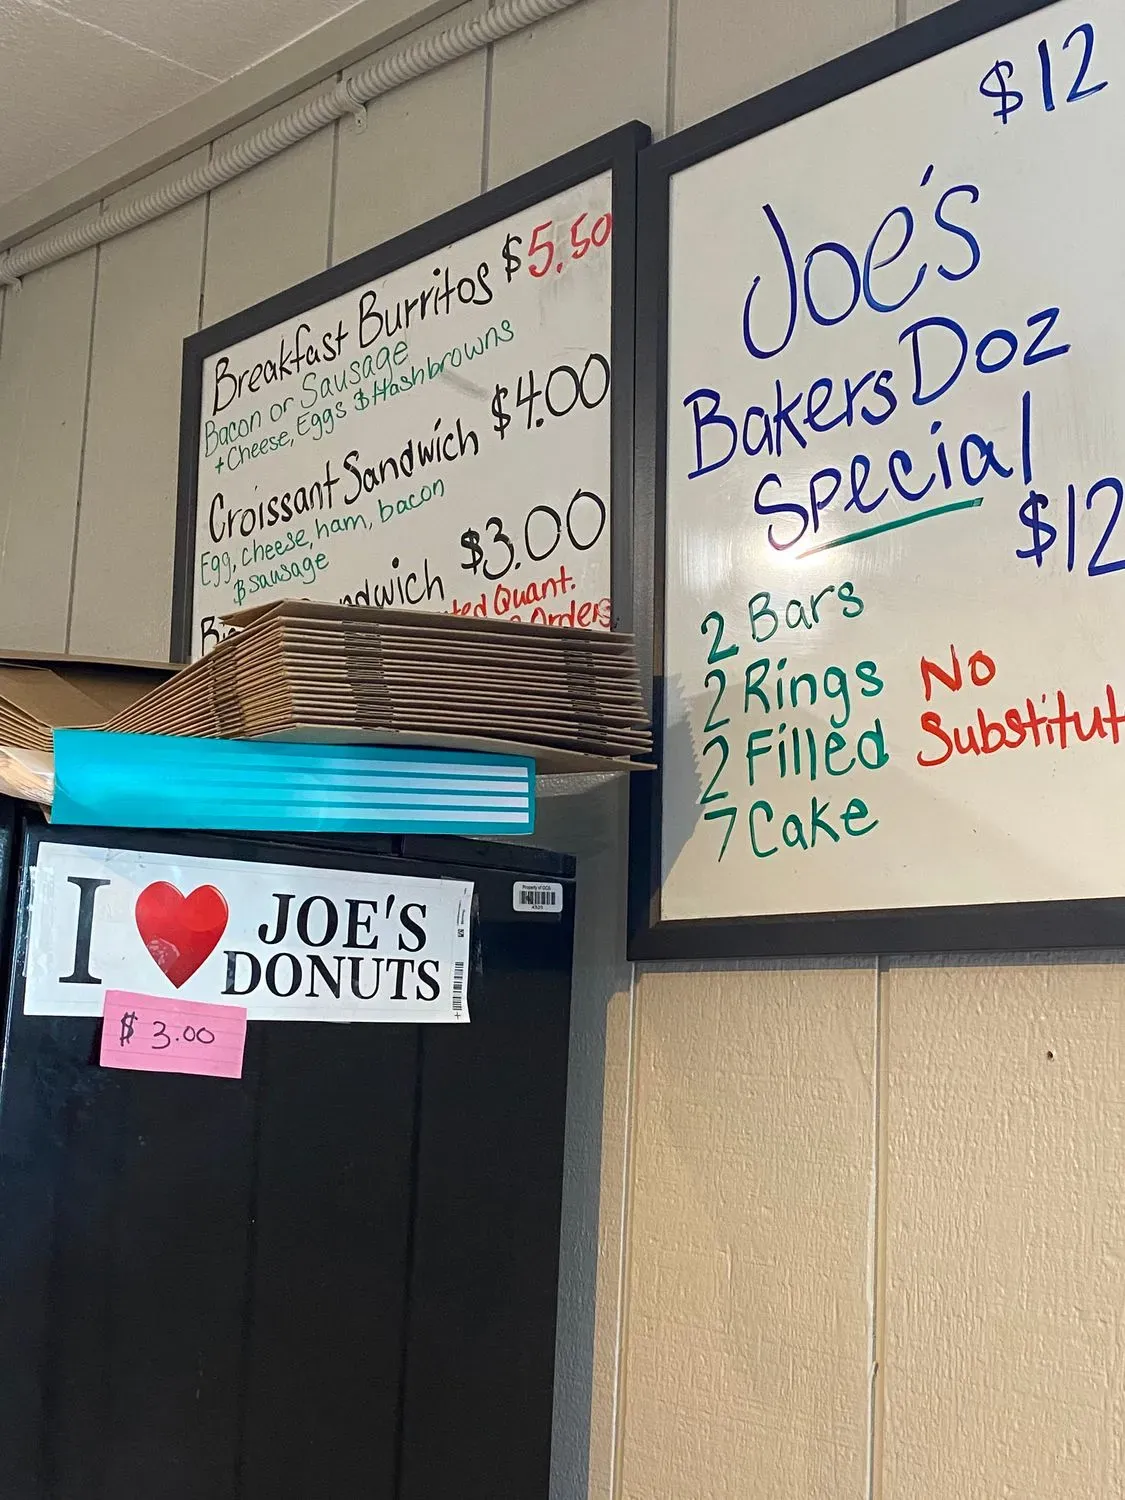 Breakfast Burritos $5.50
Bacon or Sausage
+Cheese, Eggs & Hashbrowns
Croissant Sandwich $4.00
Egg, cheese, ham, bacon
& sausage
$3.00
Quant.
Orders
$12
Joe's
Bakers Doz
Special
$12
2 Bars
2 Rings
2 Filled
7 Cake
No
Substitut
I ❤ JOE'S
DONUTS
$3.00
Property of